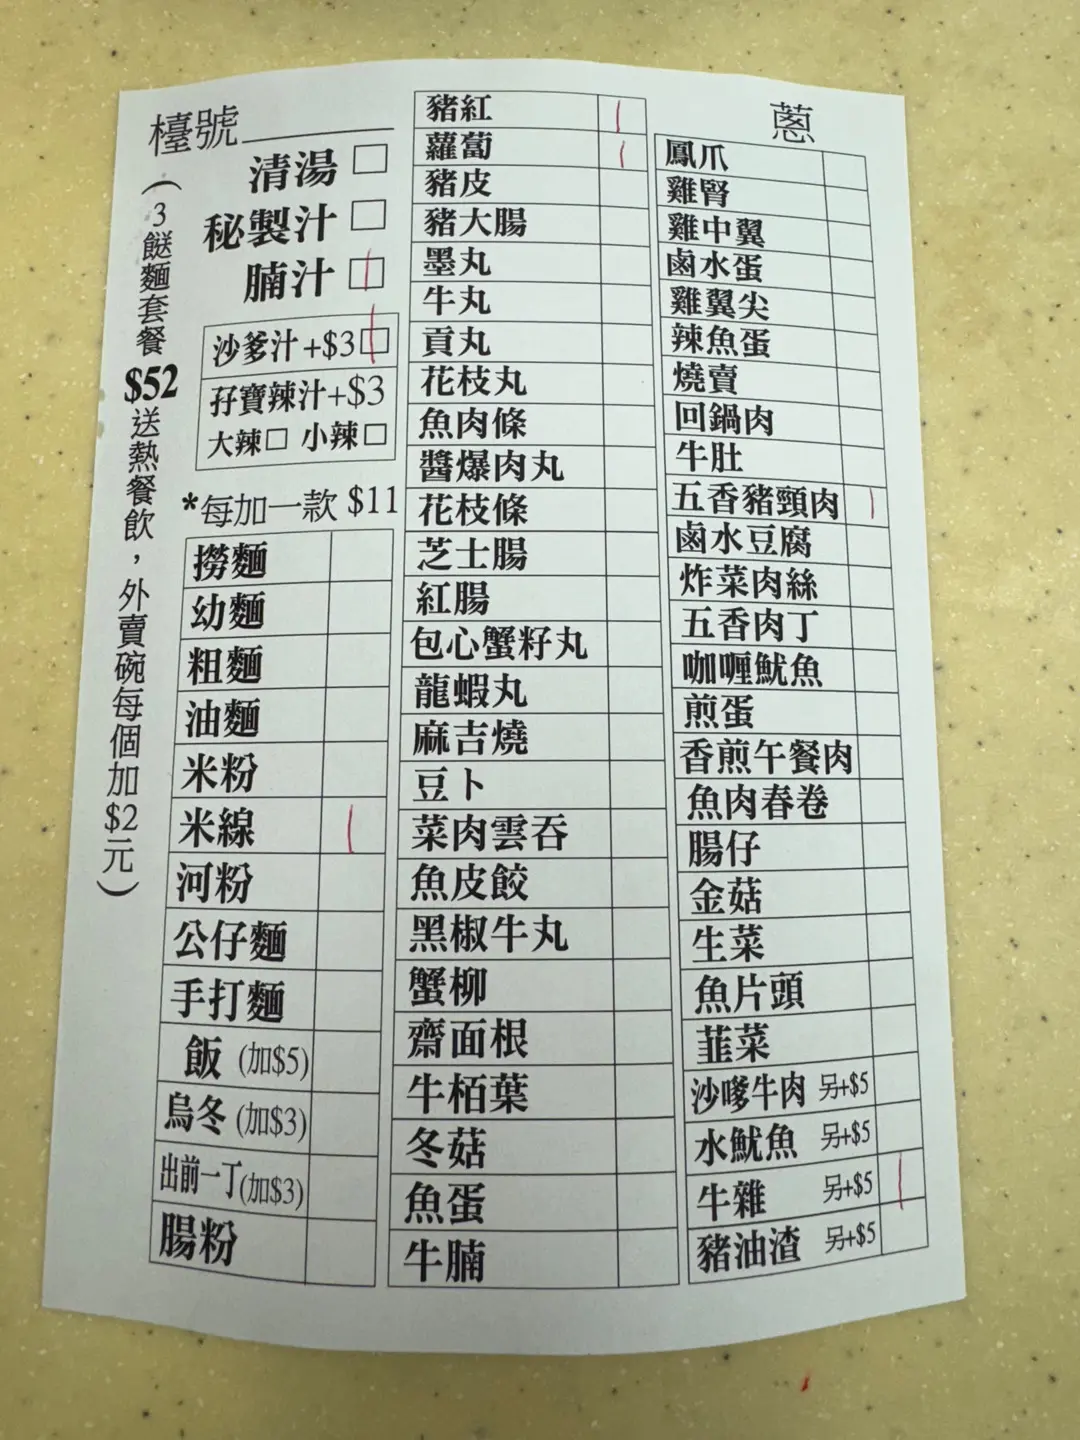 檯號
清湯
秘製汁
腩汁
沙爹汁+$3
孖寶辣汁+$3
大辣 小辣
(3餸麵套餐$52送熱餐飲，外賣碗每個加$2元)
*每加一款 $11
撈麵
幼麵
粗麵
油麵
米粉
米線
河粉
公仔麵
手打麵
飯 (加$5)
烏冬 (加$3)
出前一丁(加$3)
腸粉
豬紅
蘿蔔
豬皮
豬大腸
墨丸
牛丸
貢丸
花枝丸
魚肉條
醬爆肉丸
花枝條
芝士腸
紅腸
包心蟹籽丸
龍蝦丸
麻吉燒
豆卜
菜肉雲吞
魚皮餃
黑椒牛丸
蟹柳
齋面根
牛栢葉
冬菇
魚蛋
牛腩
蔥
鳳爪
雞腎
雞中翼
鹵水蛋
雞翼尖
辣魚蛋
燒賣
回鍋肉
牛肚
五香豬頸肉
鹵水豆腐
炸菜肉絲
五香肉丁
咖喱魷魚
煎蛋
香煎午餐肉
魚肉春卷
腸仔
金菇
生菜
魚片頭
韮菜
沙嗲牛肉 另+$5
水魷魚 另+$5
牛雜 另+$5
豬油渣 另+$5